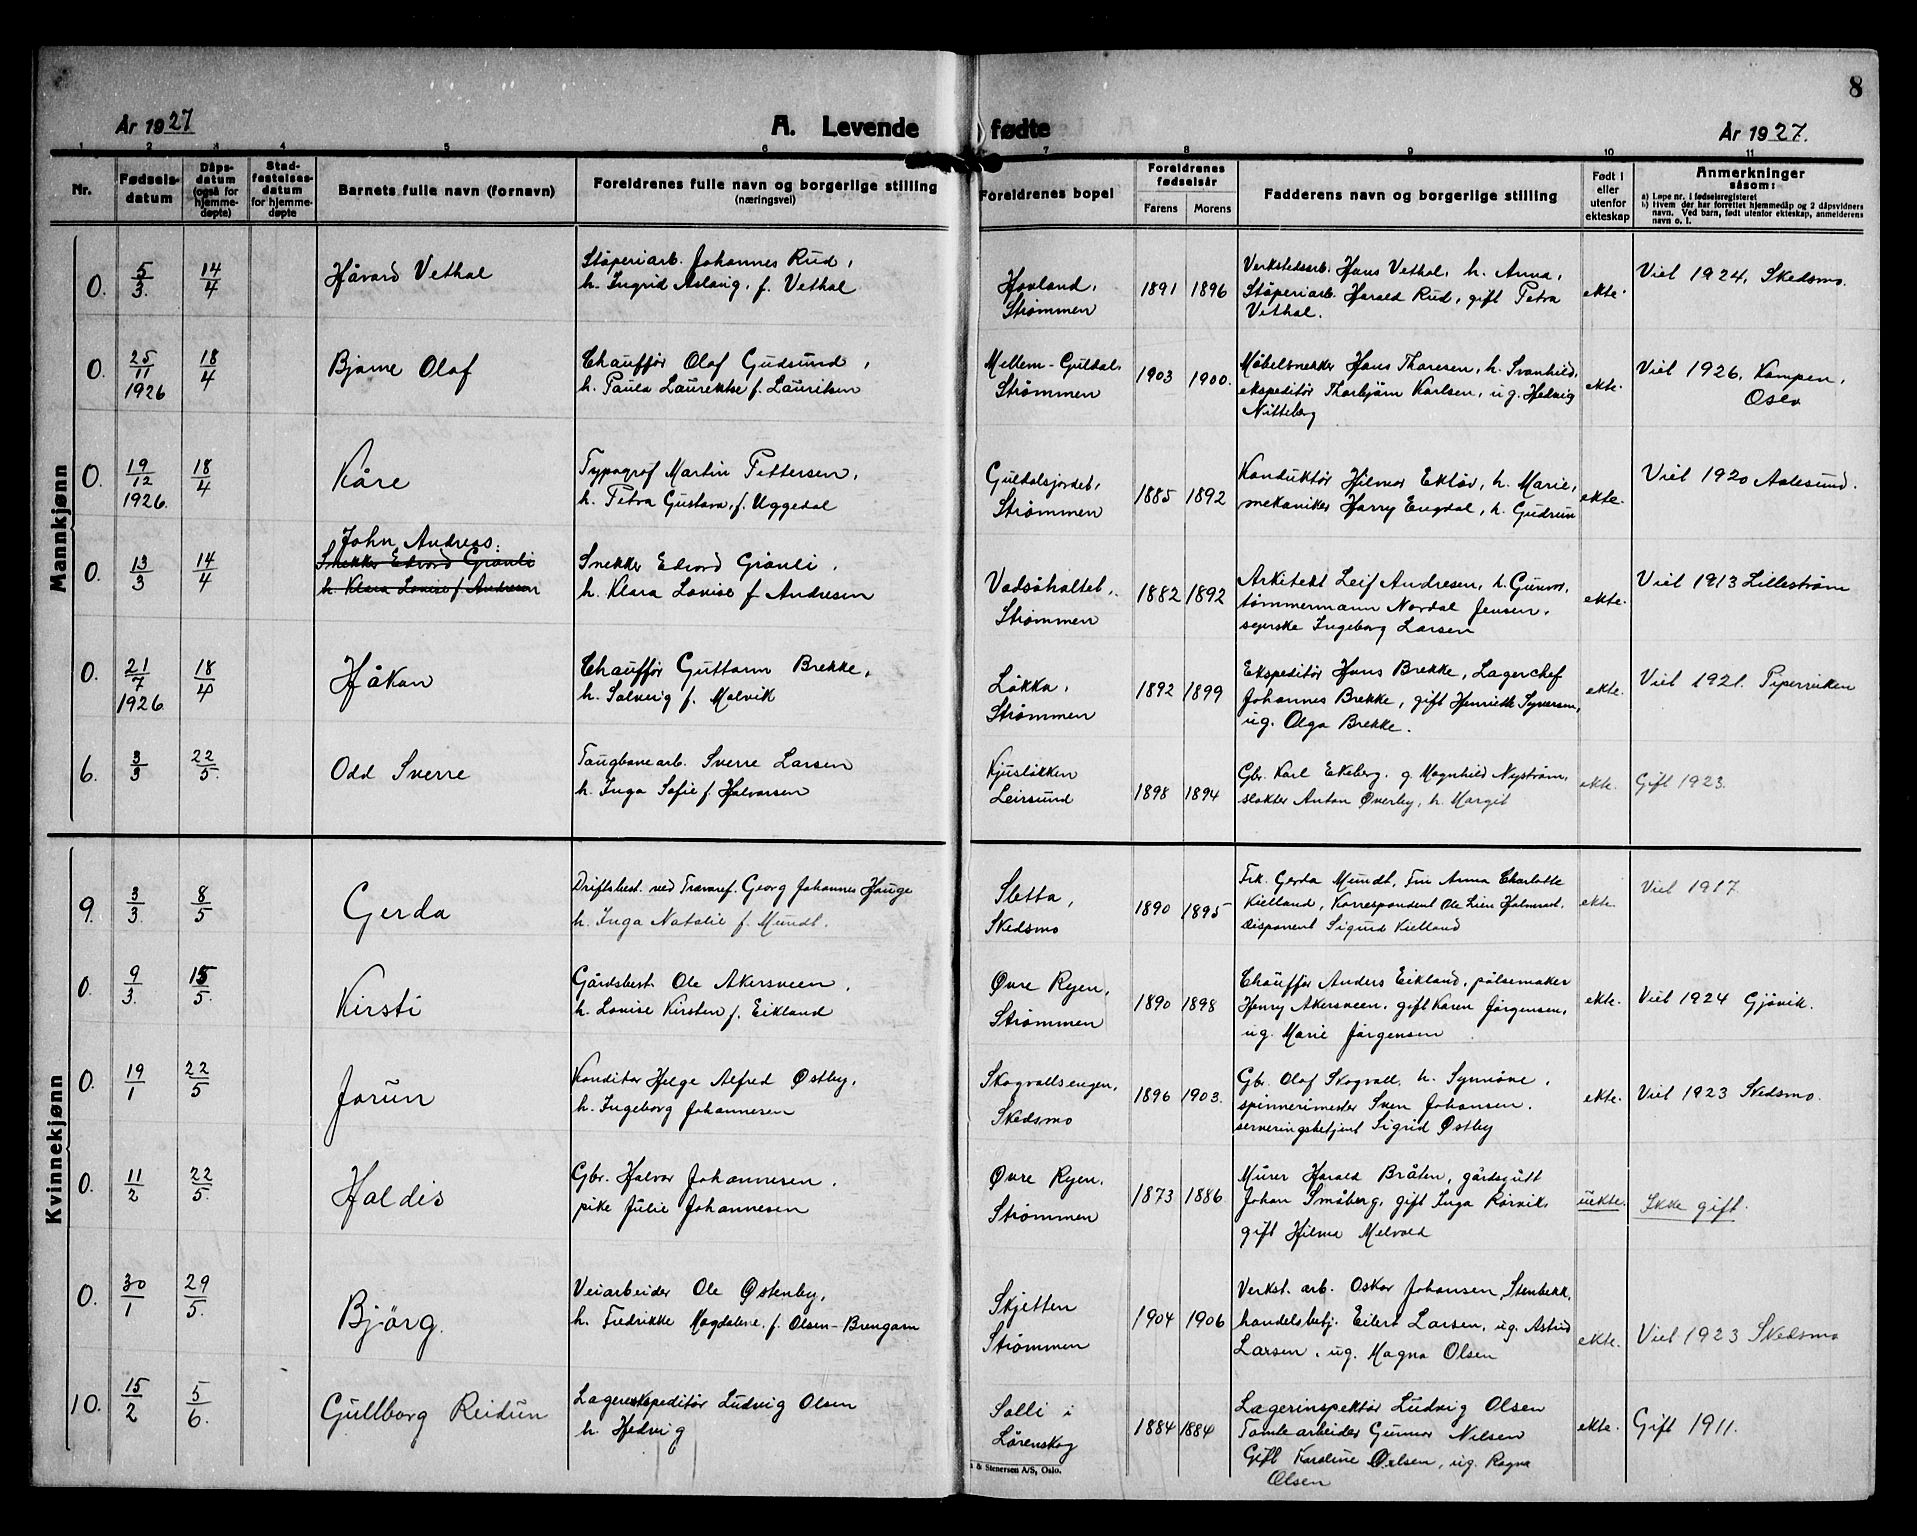 8
År 1927
A. Levende fødte
År 1927.
1 2 3 4 5 6 7 8 9 10 11
Nr.
Fødsels-
datum
Dåps-
datum
(også for
hjemme-
døpte)
Stad-
festelses-
datum
for hjemme-
døpte
Barnets fulle navn (fornavn)
Foreldrenes fulle navn og borgerlige stilling
(næringsvei)
Foreldrenes bopel
Foreldrenes
fødselsår
Farens Morens
Fadderens navn og borgerlige stilling
Født i
eller
utenfor
ekteskap
Anmerkninger
såsom:
a) Løpe nr. i fødselsregisteret
b) Hvem der har forrettet hjemmedåp og 2 dåpsvidners
navn. Ved barn, født utenfor ekteskap, anmelderens
navn o. l.
Mannkjønn
0. 5/3. 14/4 Håvard Vethal
Støperiarb. Johannes Rud,
h. Ingrid Aslaug, f. Vethal
Hovland,
Strømmen
1891 1896
Verkstedsarb. Hans Vethal, h. Anna,
Støperiarb. Harald Rud, gift Petra
Vethal.
ekte.
Viet 1924, Skedsmo.
0. 25/11 1926 18/4 Bjarne Olaf
Chauffør Olaf Gudsund,
h. Paula Laurekke f. Lauritsen
Mellem-Guldal,
Strømmen
1903 1900.
Møbelsnekker Hans Thoresen, h. Svanhild,
ekspeditør Thorbjørn Karlsen, ug. Hedvig
Nitteberg
ekte.
Viet 1926, Kampen,
Oslo
0. 19/12 1926. 18/4 Kåre
Typograf Martin Pettersen,
h. Petra Gustava, f. Uggedal
Guldalsjordet,
Strømmen
1885 1892
Konduktør Hilmar Ekløv, h. Marie,
mekaniker Harry Engdal, h. Gudrun
ekte.
Viet 1920 Aalesund.
0. 13/3 14/4 John Andreas.
Snekker Edvard Granli
h. Klara Lovise f. Andresen
Snekker Edvard Granli,
h. Klara Lovise f. Andresen
Vadsøhaltet,
Strømmen
1882 1892
Arkitekt Leif Andresen, h. Gunvor,
tømmermann Nordal Jensen,
syerske Ingeborg Larsen
ekte.
Viet 1913 Lillestrøm
0. 21/7 1926. 18/4 Håkan
Chauffør Guttorm Brekke,
h. Solveig f. Malvik
Løkka,
Strømmen
1892 1899
Ekspeditør Hans Brekke, Lagerchef
Johannes Brekke, gift Henriette Syversen,
ug. Olga Brekke.
ekte.
Viet 1921. Piperviken
6. 3/3 22/5. Odd Sverre
Taugbanearb. Sverre Larsen
h. Inga Sofie f. Halvorsen
Kjusløkken
Leirsund
1898 1894
Gbr. Karl Ekeberg, g. Magnhild Nystrøm,
slakter Anton Øverby, h. Margit
ekte.
Gift 1923.
Kvinnekjønn
9. 3/3. 8/5 Gerda
Driftsbest. ved Trævaref. Georg Johannes Hauge
h. Inga Natalie f. Mundt.
Sletta,
Skedsmo
1890 1895
Frk. Gerda Mundt, Fru Anna Charlotte
Kielland, Korrespondent Ole Lien Holmrast,
disponent Sigurd Kielland
ekte.
Viet 1917.
0. 9/3. 15/5. Kirsti
Gårdsbest. Ole Akersveen,
h. Lovise Kirsten f. Eikland
Øvre Ryen,
Strømmen
1890 1898
Chauffør Anders Eikland, pølsemaker
Henry Akersveen, gift Karen Jørgensen,
ug. Marie Jørgensen
ekte.
Viet 1924 Gjøvik.
0. 19/1 22/5 Jorun
Konditor Helge Alfred Østby,
h. Ingeborg Johannesen
Skogvollsengen,
Skedsmo
1896 1903.
Gbr. Olaf Skogvoll, h. Synnøve,
spinnerimester Sven Johansen,
serveringsbetjent Sigrid Østby
ekte.
Viet 1923 Skedsmo.
0. 11/2 22/5. Haldis
Gbr. Halvor Johannesen,
pike Julie Johannesen
Øvre Ryen,
Strømmen
1873 1886
Murer Harald Bråten, gårdsgutt
Johan Småberg, gift Inga Rørvik,
gift Hilma Melvold
uekte.
Ikke gift.
0. 30/1 29/5. Bjørg.
Veiarbeider Ole Østenby,
h. Fredrikke Magdalene, f. Olsen-Brengarn
Skjetten
Strømmen
1904 1906
Verkst. arb. Oskar Johansen, Stenbekk,
handelsbetj. Eilert Larsen, ug. Astrid
Larsen, ug. Magna Olsen
ekte.
Viet 1923 Skedsmo
10. 15/2 5/6. Gullborg Reidun
Lagerekspeditør Ludvig Olsen
h. Hedvig
Solli i
Lørenskog
1884 1884
Lagerinspektør Ludvig Olsen
Tomtearbeider Gunnar Nilsen
Gift Karoline Olsen, ug. Ragna
Olsen
ekte.
Gift 1911.
& Stenersen A/S, Oslo.